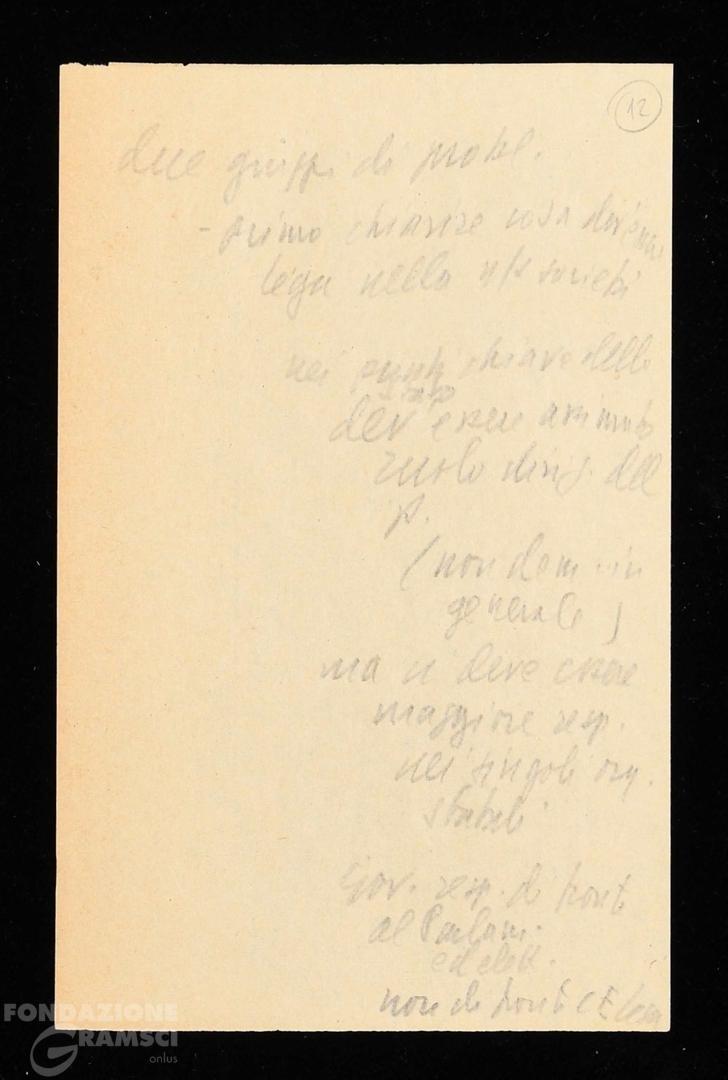 12
due gruppi di probl.
- primo chiarire cosa dev'essere
lega nella n/s società
nei punti chiave della
dev'essere assicurato
ruolo dirig. del
p.
(non dem in
generale)
ma ci deve essere
maggiore resp.
nei singoli org.
statali
Gov. resp. di fronte
al Parlam.
ed elett.
non di fronte C.E.
FONDAZIONE
GRAMSCI
onlus